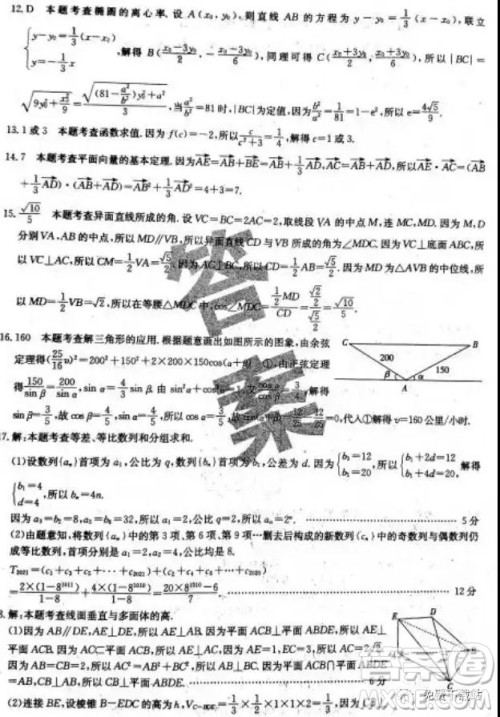 12. D 本题考查椭圆的离心率. 设 A(x₀, y₀), 则直线 AB 的方程为 y−y₀=1/3(x−x₀), 联立
{y−y₀=1/3(x−x₀) y=−1/3x, 解得 B((x₀−3y₀)/2, −(x₀−3y₀)/6), 同理可得 C((x₀+3y₀)/2, (x₀+3y₀)/6), 所以|BC|=
√(9y₀²+x₀²/9)=√(((81−a²/b²)y₀²+a²)/3), 当a²/b²=81时, |BC|为定值, 因为b²/a²=1/81=1−e², 所以e=4√5/9.
13. 1或3 本题考查函数求值. 因为 f(c)=−2, 所以c/(c²+3)=1/4, 解得 c=1或3.
14. 7 本题考查平面向量的基本定理. 因为AE=AB+BE=AB+1/3AD, AC=AB+AD, 所以AE·AC=(AB+
1/3AD)·(AB+AD)=AB²+1/3AD²=4+3=7.
15. √10/5 本题考查异面直线所成的角. 设 VC=BC=2AC=2, 取线段 VA 的中点 M, 连 MC, MD, 因为 M, D
分别 VA, AB 的中点, 所以 MD∥VB, 所以异面直线 CD 与 VB 所成的角为∠MDC. 因为 VC⊥底面 ABC, 所
以 VC⊥AC, 所以 CM=1/2VA=√5/2. 因为 AC⊥BC, 所以 CD=1/2AB=√5/2. 因为 MD 为△AVB 的中位线, 所
以 MD=1/2VB=√2, 所以在等腰△MDC 中, cos∠MDC=(1/2MD)/CD=(√2/2)/(√5/2)=√10/5.
16. 160 本题考查解三角形的应用. 根据题意画出如图所示的图象, 由余弦
定理得(25/16v)²=200²+150²+2×200×150cos(α+β) ①, 由正弦定理
得150/sinβ=200/sinα, sinα=4/3sinβ, 由 sin²α+cos²α=1, 解得
sinβ=3/5, 故 cosβ=4/5, sinα=4/5, 故 cosα=3/5, cos(α+β)=0, 代入①解得 v=160 公里/小时.
C B 200 150 β α A
17. 解: 本题考查等差、等比数列和分组求和.
(1)设数列{aₙ}首项为 a₁, 公比为 q, 设数列{bₙ}首项为 b₁, 公差为 d, 因为{b₃=12 b₅=20, 所以{b₁+2d=12 b₁+4d=20,
所以{b₁=4 d=4, 所以 bₙ=4n.
因为 a₃=b₂=8, a₅=b₈=32, 所以 a₁=2, 公比 q=2, 所以 aₙ=2ⁿ. 5 分
(2)由题意知, 将数列{aₙ}中的第 3 项、第 6 项、第 9 项…删去后构成的新数列{cₙ}中的奇数列与偶数列仍
成等比数列, 首项分别是 a₁=2, a₂=4, 公比均是 8.
T₂₀₂₁=(c₁+c₃+c₅+…+c₂₀₂₁)+(c₂+c₄+c₆+…+c₂₀₂₀)
=2×(1−8¹⁰¹¹)/(1−8)+4×(1−8¹⁰¹⁰)/(1−8)=(20×8¹⁰¹⁰−6)/7. 12 分
8. 解: 本题考查线面垂直与多面体的高.
(1)因为 AB∥DE, AE⊥DE, 所以 AE⊥AB. 因为平面 ACB⊥平面 ABDE, 所以
AE⊥平面 ACB. 因为 AC⊂平面 ACF, 所以 AE⊥AC. 因为 AE=1, EC=3, 所以 AC=
因为 AB=4, BC=2, 所以 AC²+BC²=AB², 所以 AC⊥BC, 因为平面 ACB⊥平面
=AB, CB⊥AB, 所以 CB⊥平面
(2)连接 BE, 设棱锥 B−ECD 的高为 h, 因为 CB
E D A B C
答案